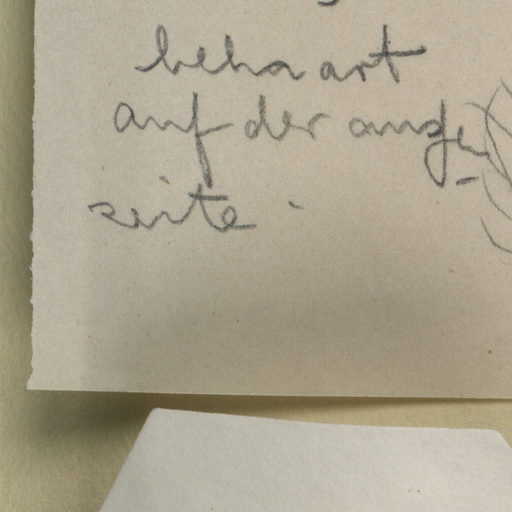 behaart
auf der auße
seite.